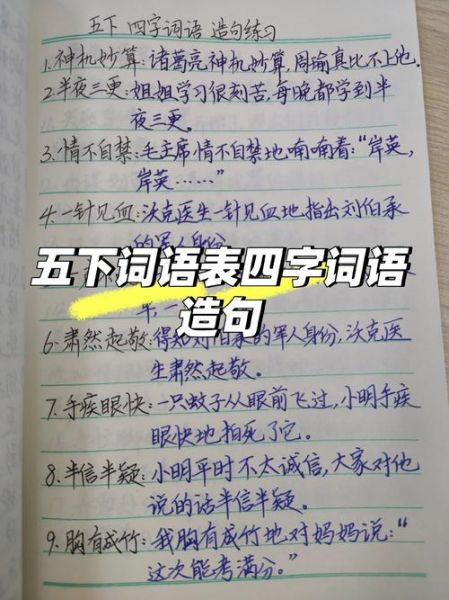 五下 四字词语 造句练习
1.神机妙算:诸葛亮神机妙算,周瑜真比不上他.
2.半夜三更:姐姐学习很刻苦,每晚都学到半
夜三更。
3.情不自禁:毛主席情不自禁地喃喃着:“岸英,
岸英……”
4.一针见血:沃克医生一针见血地指出刘伯承
的军人身份
五下词语表四字词语
造句
6.肃然起敬:得知刘伯承的军人身份,沃克医
生肃然起敬。
7.手疾眼快:一只蚊子从眼前飞过,小明手疾
眼快地拍死了它。
8.半信半疑:小明平时不太诚信,大家对他
说的话半信半疑。
9.胸有成竹:我胸有成竹地对妈妈说:“
这次能考满分。”